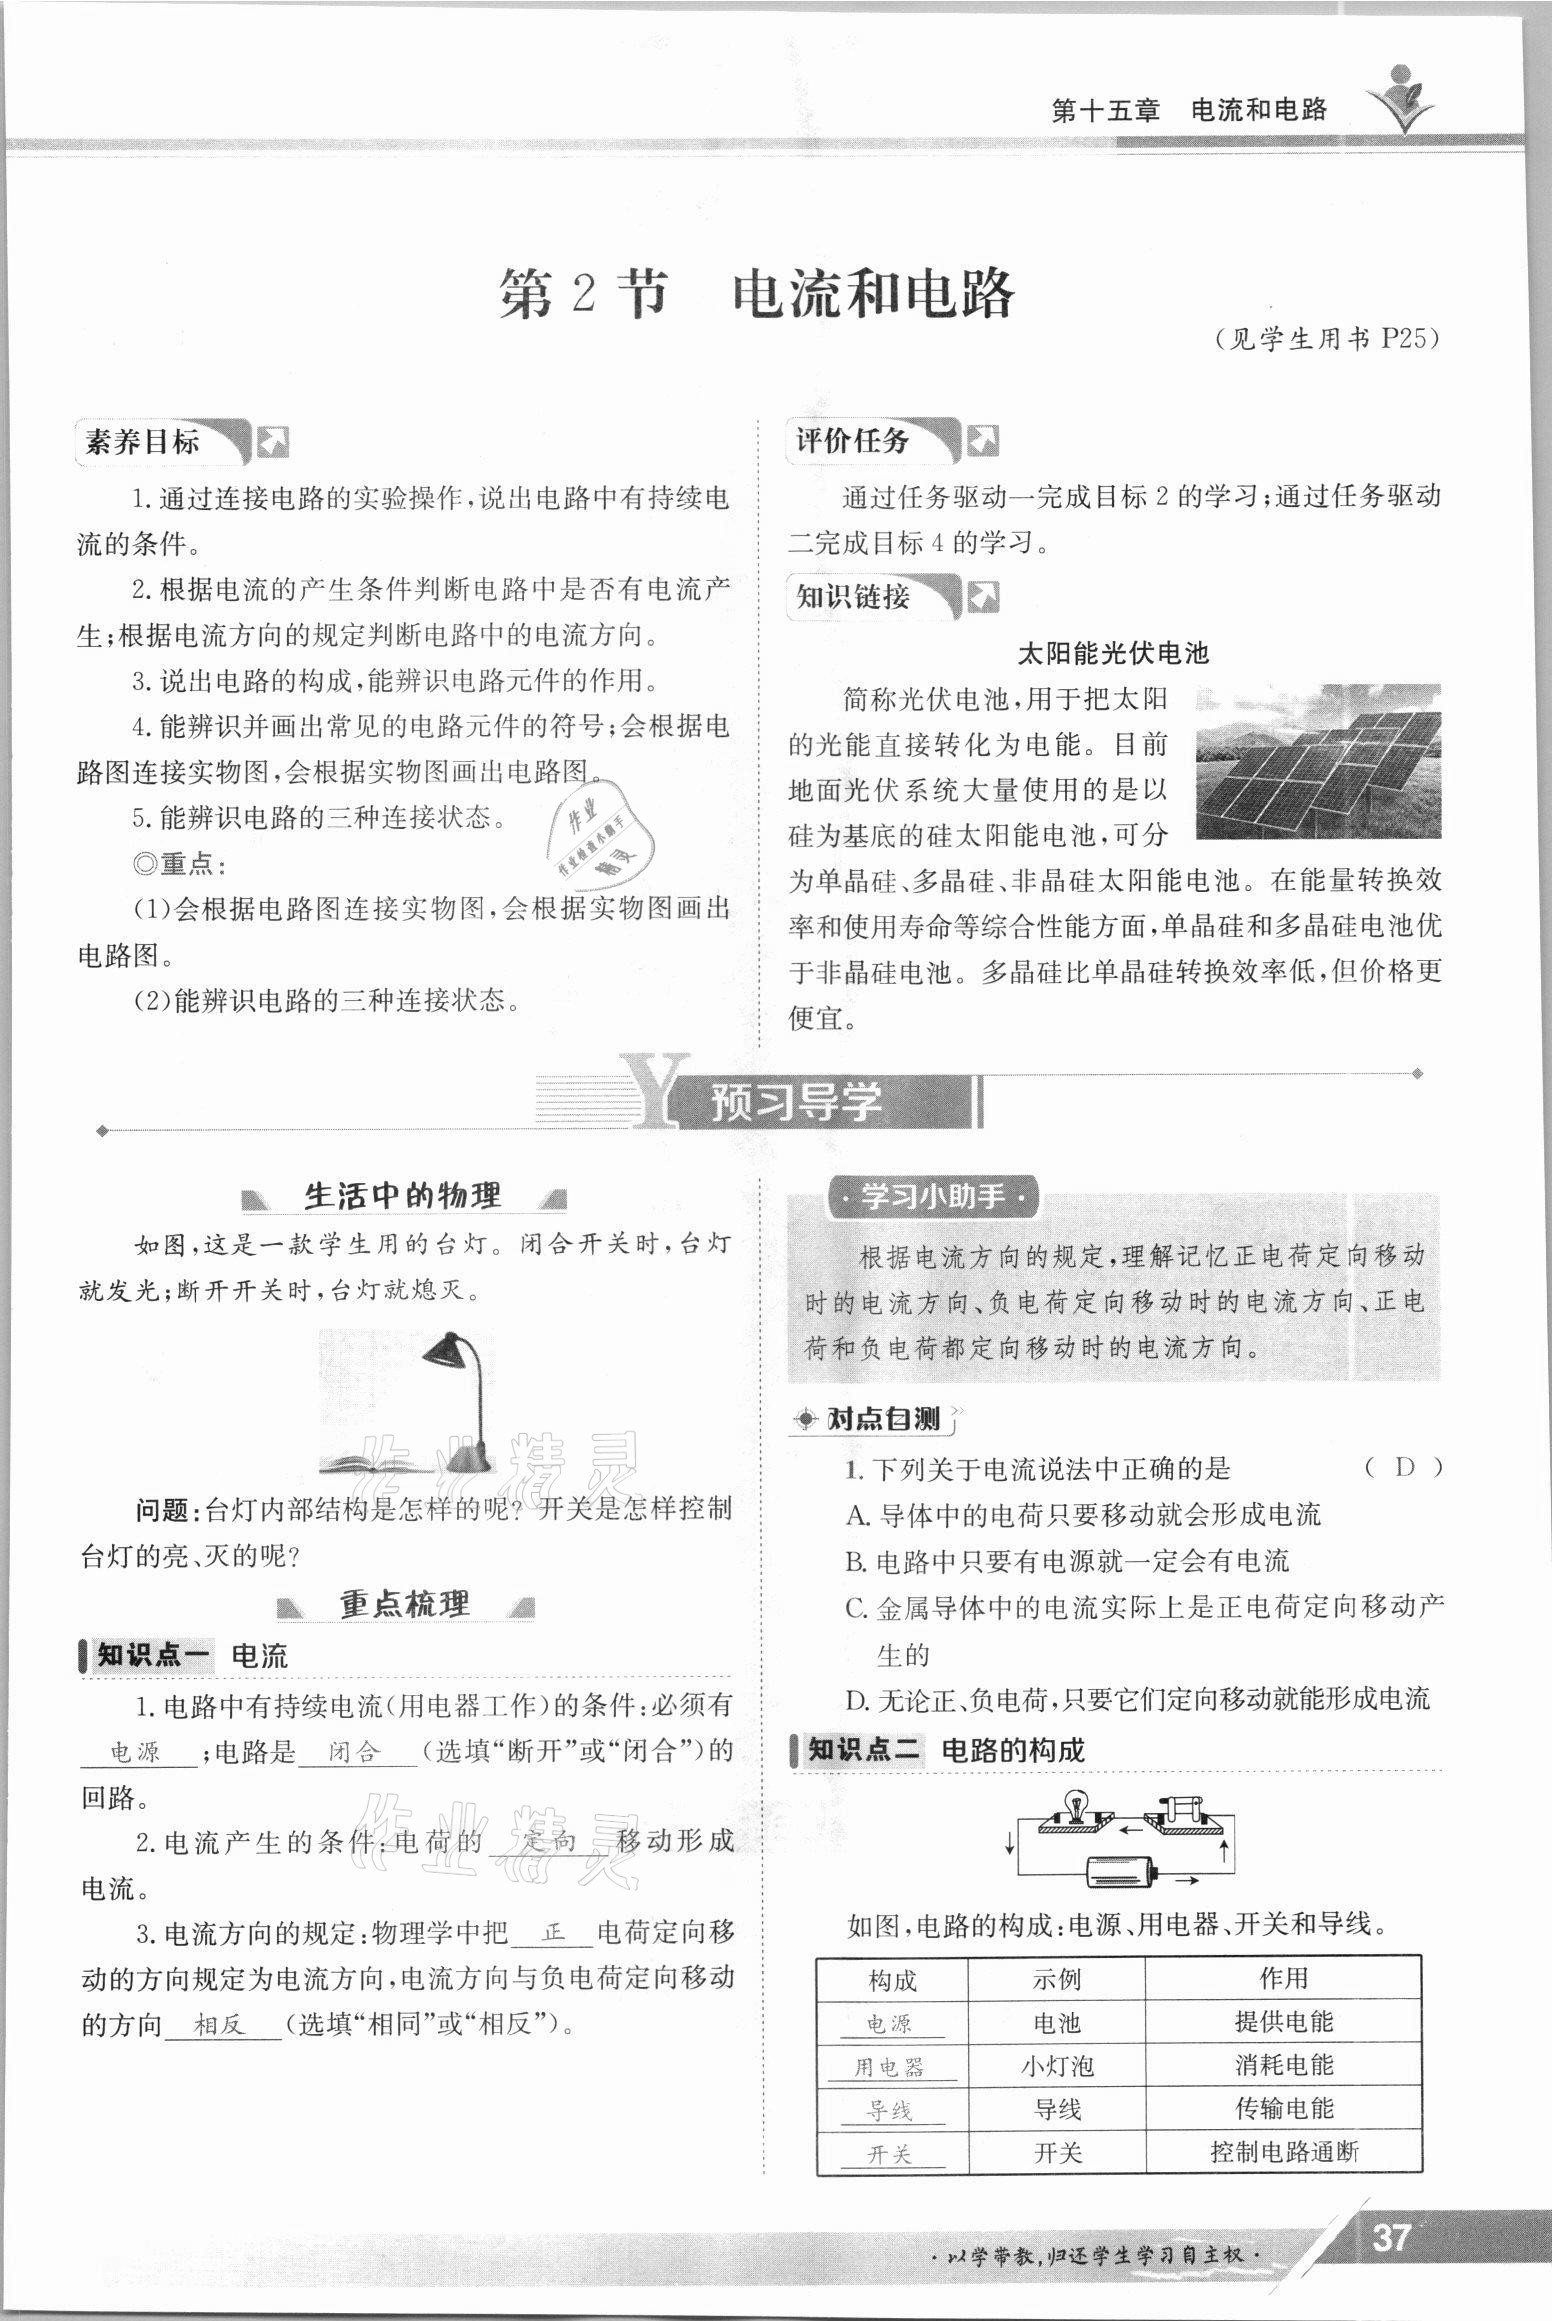 第十五章 电流和电路
第 2 节 电流和电路
(见学生用书 P25)
素养目标
1.通过连接电路的实验操作,说出电路中有持续电
流的条件。
2.根据电流的产生条件判断电路中是否有电流产
生;根据电流方向的规定判断电路中的电流方向。
3.说出电路的构成,能辨识电路元件的作用。
4.能辨识并画出常见的电路元件的符号;会根据电
路图连接实物图,会根据实物图画出电路图。
5.能辨识电路的三种连接状态。
◎重点:
(1)会根据电路图连接实物图,会根据实物图画出
电路图。
(2)能辨识电路的三种连接状态。
作业
作业检查小助手
精灵
评价任务
通过任务驱动一完成目标 2 的学习;通过任务驱动
二完成目标 4 的学习。
知识链接
太阳能光伏电池
简称光伏电池,用于把太阳
的光能直接转化为电能。目前
地面光伏系统大量使用的是以
硅为基底的硅太阳能电池,可分
为单晶硅、多晶硅、非晶硅太阳能电池。在能量转换效
率和使用寿命等综合性能方面,单晶硅和多晶硅电池优
于非晶硅电池。多晶硅比单晶硅转换效率低,但价格更
便宜。
Y 预习导学
生活中的物理
如图,这是一款学生用的台灯。闭合开关时,台灯
就发光;断开开关时,台灯就熄灭。
作业精灵
问题:台灯内部结构是怎样的呢?开关是怎样控制
台灯的亮、灭的呢?
重点梳理
知识点一 电流
1.电路中有持续电流(用电器工作)的条件:必须有
电源 ;电路是 闭合 (选填“断开”或“闭合”)的
回路。
2.电流产生的条件:电荷的 定向 移动形成
电流。
作业精灵
3.电流方向的规定:物理学中把 正 电荷定向移
动的方向规定为电流方向,电流方向与负电荷定向移动
的方向 相反 (选填“相同”或“相反”)。
·学习小助手·
根据电流方向的规定,理解记忆正电荷定向移动
时的电流方向、负电荷定向移动时的电流方向、正电
荷和负电荷都定向移动时的电流方向。
对点自测
1.下列关于电流说法中正确的是 ( D )
A.导体中的电荷只要移动就会形成电流
B.电路中只要有电源就一定会有电流
C.金属导体中的电流实际上是正电荷定向移动产
生的
D.无论正、负电荷,只要它们定向移动就能形成电流
知识点二 电路的构成
如图,电路的构成:电源、用电器、开关和导线。
构成 示例 作用
电源 电池 提供电能
用电器 小灯泡 消耗电能
导线 导线 传输电能
开关 开关 控制电路通断
·以学带教,归还学生学习自主权·
37